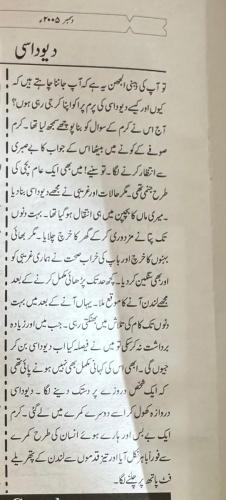 دسمبر ۲۰۰۵ء
دیوداسی
تو آپ کی ذہنی الجھن یہ ہے کہ آپ جاننا چاہتے ہیں کہ
کیوں اور کیسے دیوداسی کی پرم پرا کو اپنا کر جی رہی ہوں؟
آج اس نے کرم کے سوال کو بنا پوچھے سمجھ لیا تھا۔ کرم
صوفے کے کونے میں بیٹھا اس کے جواب کا بے صبری
سے انتظار کرنے لگا۔ تو سنیے! میں بھی ایک عام بچی کی
طرح جنمی تھی۔ مگر حالات اور غریبی نے مجھے دیوداسی بنا دیا
۔ میری ماں کا بچپن میں ہی انتقال ہو گیا تھا۔ بہت دنوں
تک پتا نے مزدوری کر کے گھر کا خرچ چلایا۔ مگر بھائی
بہنوں کا خرچ اور باپ کی خراب صحت نے ہماری غریبی کو
اور بھی سنگین کر دیا۔ کچھ حد تک پڑھائی مکمل کرنے کے بعد
مجھے لندن آنے کا موقع ملا۔ یہاں آنے کے بعد میں بہت
دنوں تک کام کی تلاش میں بھٹکتی رہی۔ جب میں اور زیادہ
برداشت نہ کر سکی تو میں نے فیصلہ کیا اب دیوداسی بن کر
جیوں گی۔ ابھی اس کی کہانی مکمل بھی نہیں ہونے پائی تھی
کہ ایک شخص دروازے پر دستک دینے لگا۔ دیوداسی
دروازہ کھول کر اسے دوسرے کمرے میں لے گئی۔ کرم
ایک بے بس اور ہارے ہوئے انسان کی طرح کمرے
سے فوراً باہر نکل آیا اور تیز قدموں سے لندن کے پتھریلے
فٹ پاتھ پر چلنے لگا۔